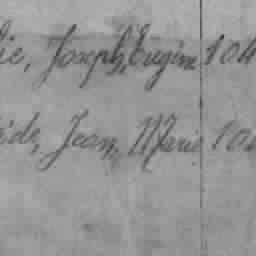 lie, Joseph, Eugène 104
ide, Jean, Marie 10